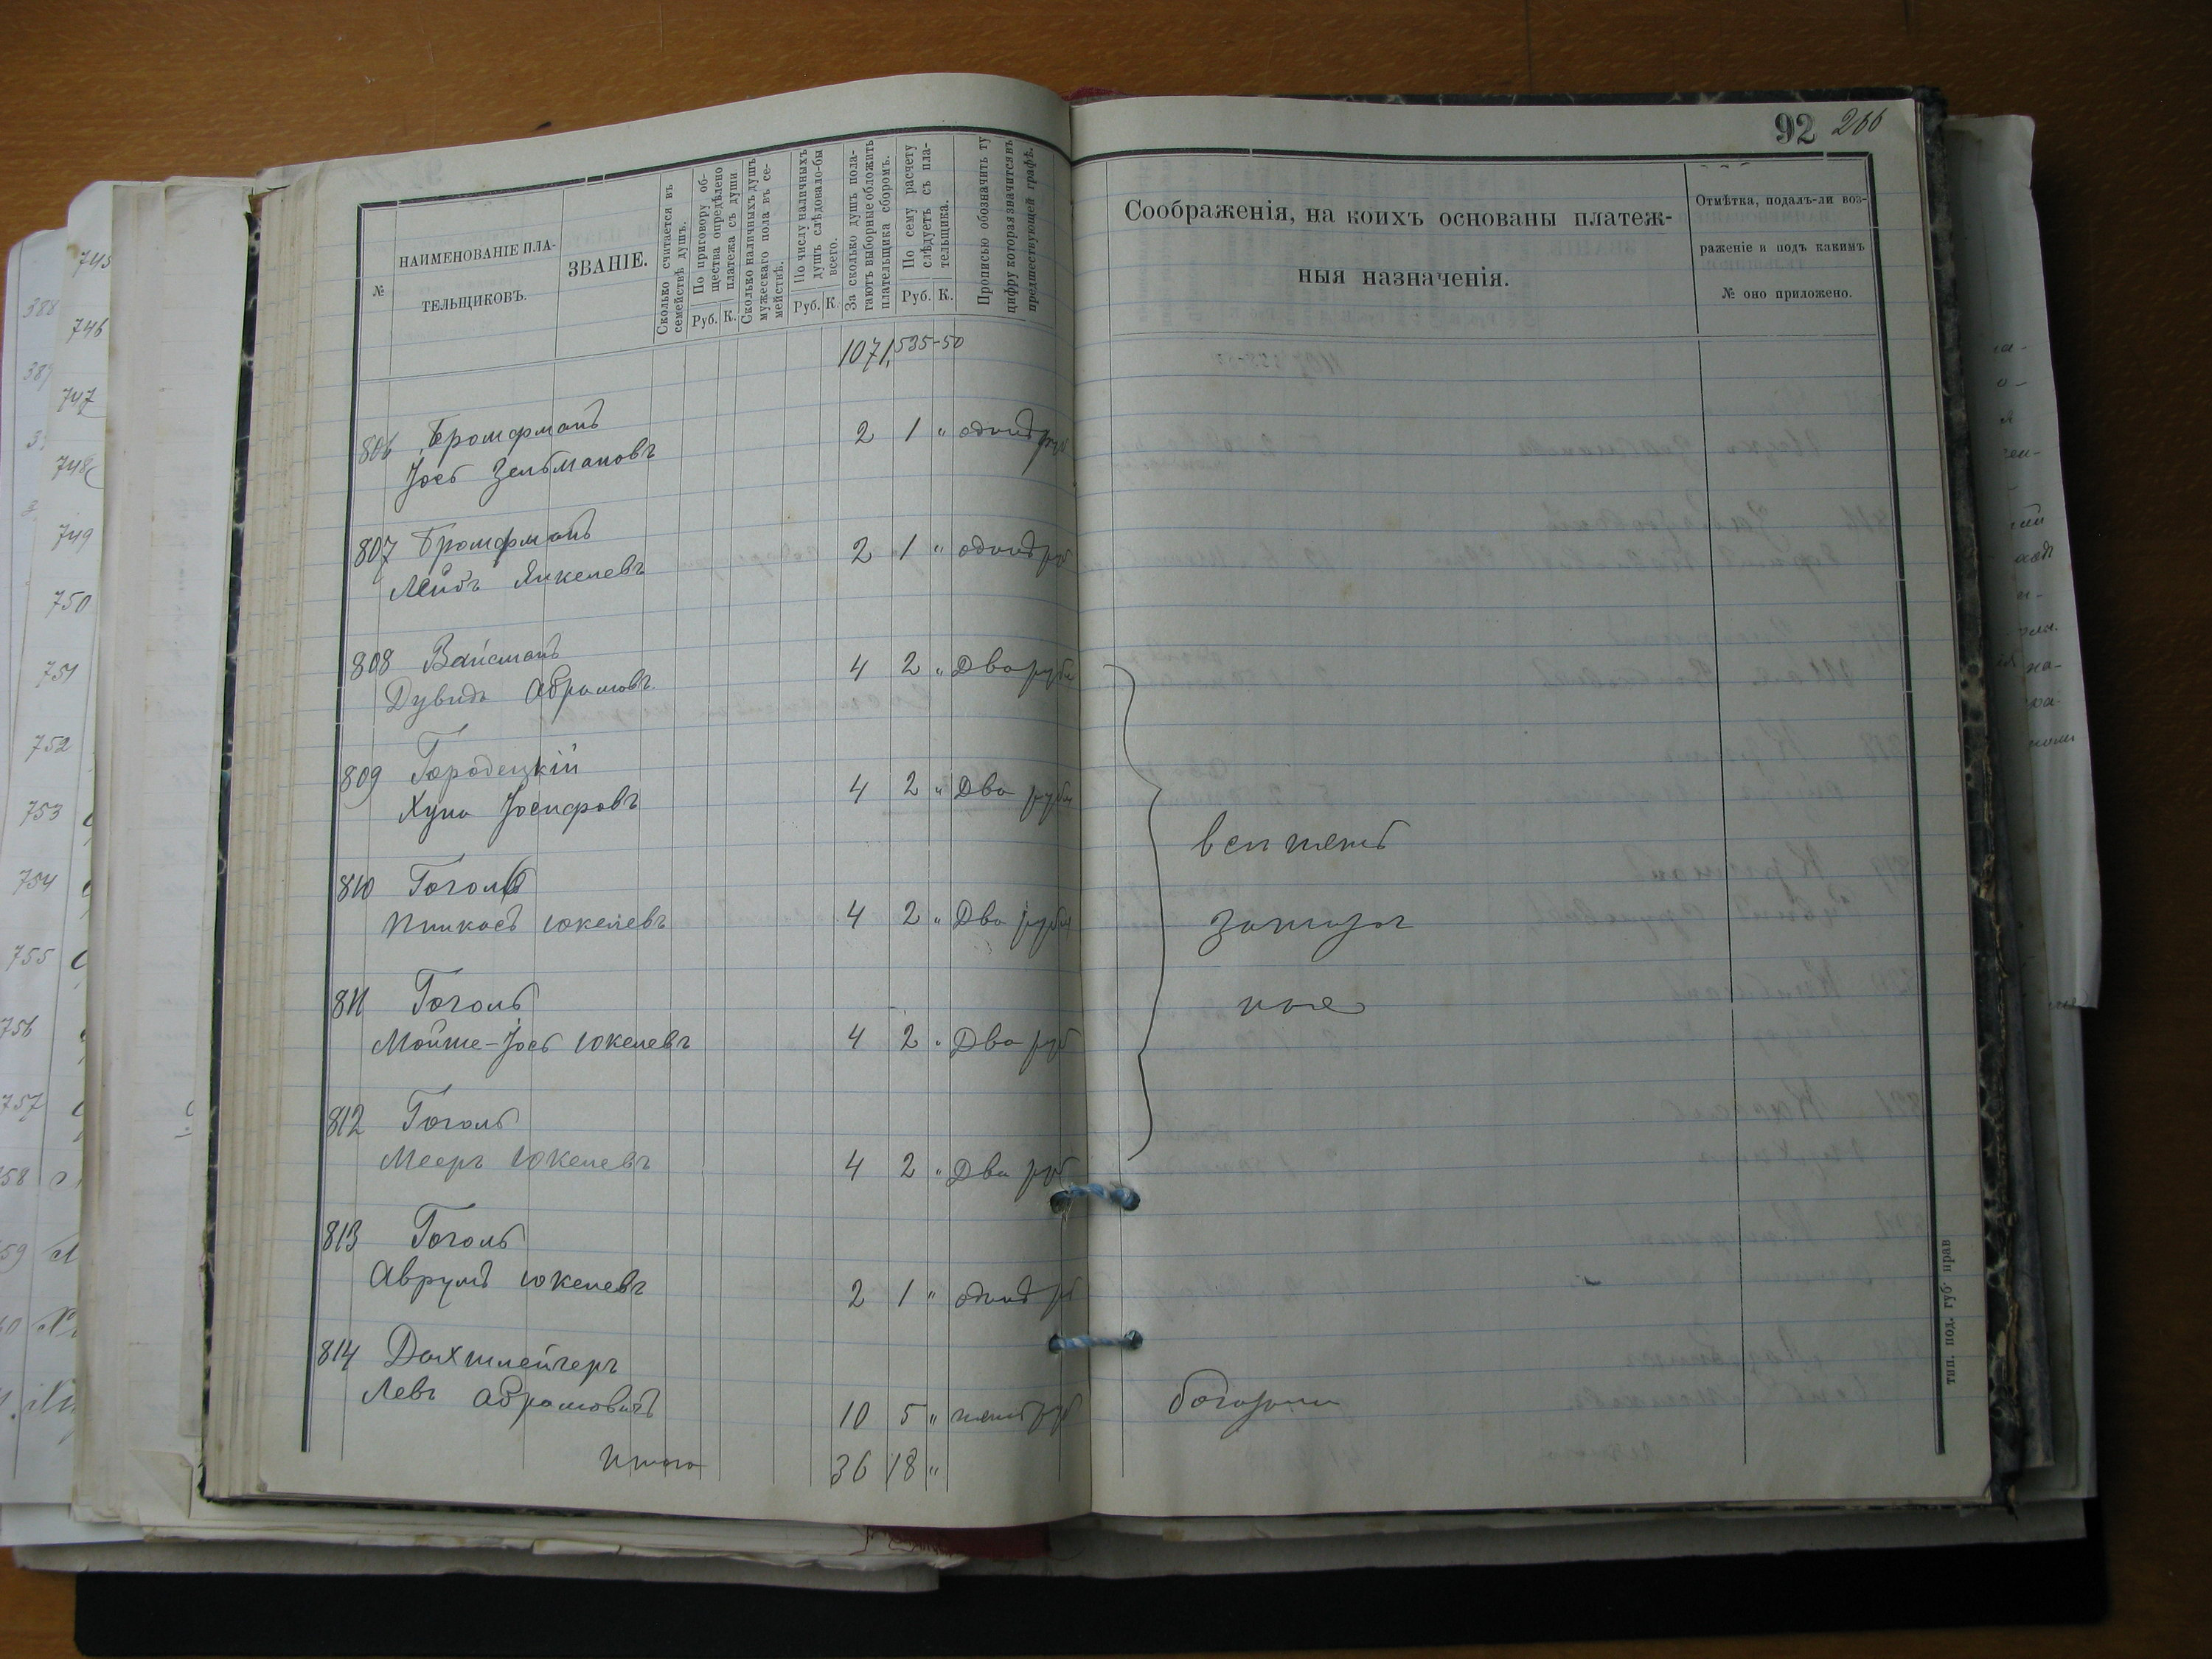 92 266
№
НАИМЕНОВАНІЕ ПЛА-
ТЕЛЬЩИКОВЪ.
ЗВАНІЕ.
Сколько считается въ
семействѣ душъ.
По приговору об-
щества опредѣлено
платежа съ души
Руб. К.
Сколько наличныхъ душъ
мужескаго пола въ се-
мействѣ.
По числу наличныхъ
душъ слѣдовало-бы
всего.
Руб. К.
За сколько душъ пола-
гаютъ выборные обложить
плательщика сборомъ.
По сему расчету
слѣдуетъ съ пла-
тельщика.
Руб. К.
Прописью обозначить ту
цифру которая значится въ
предшествующей графѣ.
Соображенія, на коихъ основаны платеж-
ныя назначенія.
Отмѣтка, подалъ-ли воз-
раженіе и подъ какимъ
№ оно приложено.
1071, 535-50
806 Бромфманъ
Іось Зельмановъ 2 1 " одинъ руб
807 Бромфманъ
Лейбъ Янкелевъ 2 1 " одинъ руб
808 Вайсманъ
Дувидъ Абрамовъ 4 2 " Два рубл
809 Городецкій
Хуна Іосифовъ 4 2 " Два рубл
810 Гоголь
Пинкасъ Юкелевъ 4 2 " Два рубл
811 Гоголь
Мойше-Іось Юкелевъ 4 2 " Два руб
812 Гоголь
Мееръ Юкелевъ 4 2 " Два руб
813 Гоголь
Аврумъ Юкелевъ 2 1 " одинъ рб
814 Дахшлейгеръ
Левъ Абрамовичъ 10 5 " пять руб
Итого 36 18 "
тип. под. губ. прав
745
746
747
748
749
750
751
752
753
754
755
756
757